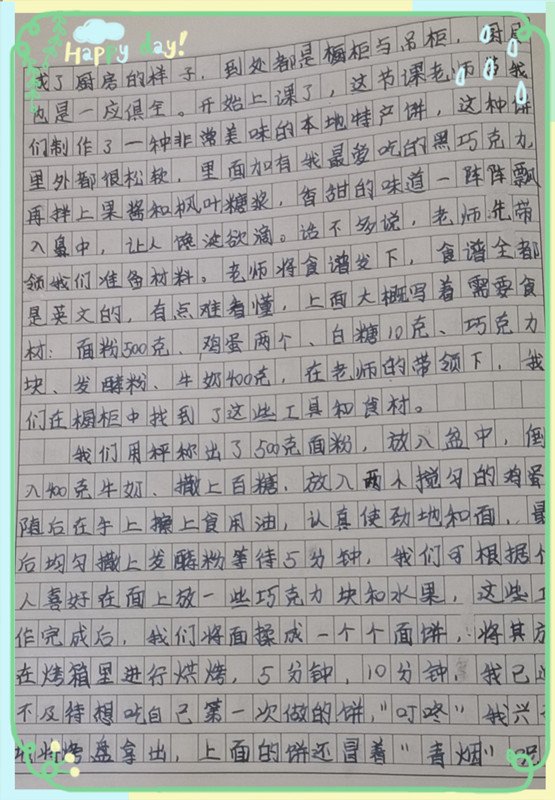 Happy day!
成了厨房的样子,到处都是橱柜与吊柜,厨具
也是一应俱全。开始上课了,这节课老师带我
们制作了一种非常美味的本地特产饼,这种饼
里外都很松软,里面加有我最爱吃的黑巧克力
再拌上果酱和枫叶糖浆,香甜的味道一阵阵飘
入鼻中,让人馋涎欲滴。话不多说,老师先带
领我们准备材料。老师将食谱发下,食谱全都
是英文的,有点难看懂,上面大概写着需要食
材:面粉500克、鸡蛋两个、白糖10克、巧克力
块、发酵粉、牛奶400克,在老师的带领下,我
们在橱柜中找到了这些工具和食材。
我们用秤称出了500克面粉,放入盆中,倒
入400克牛奶、撒上白糖,放入两个搅匀的鸡蛋
随后在手上擦上食用油,认真使劲地和面,最
后均匀撒上发酵粉等待5分钟,我们可根据
人喜好在面上放一些巧克力块和水果,这些工
作完成后,我们将面揉成一个个面饼,将其放
在烤箱里进行烘烤,5分钟,10分钟,我已
不及待想吃自己第一次做的饼,"叮咚"我兴
将烤盘拿出,上面的饼还冒着"青烟"